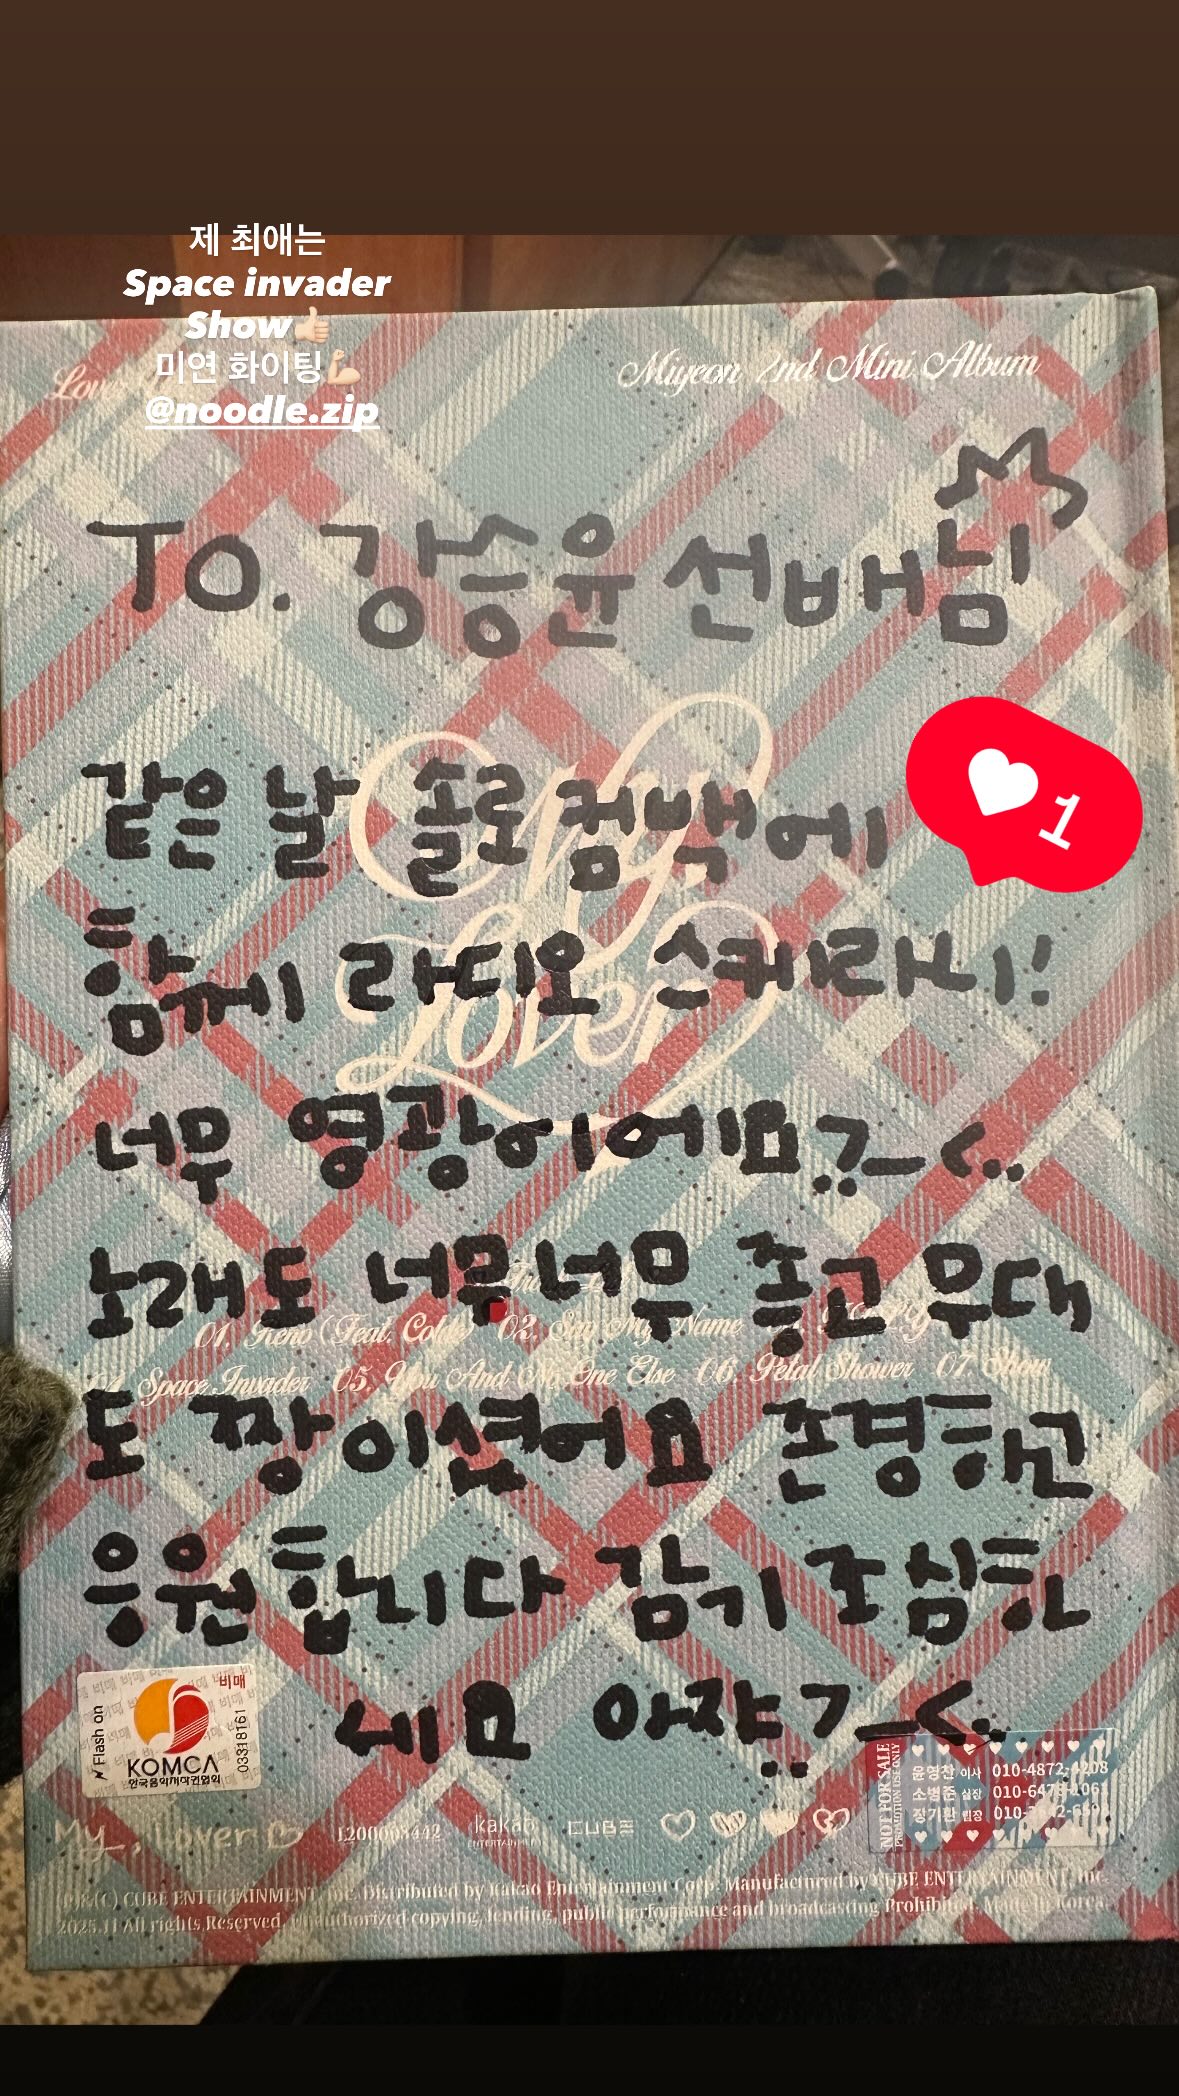 제 최애는
Space invader
Show👍🏻
미연 화이팅💪🏻
@noodle.zip
Miyeon 2nd Mini Album
TO. 강승윤 선배님
1
같은 날 솔로 컴백에
함께 라디오 스퀴라니!
너무 영광이에요?_<..
My, Lover
노래도 너무너무 좋고 무대
01. Reno (Feat. Colde) 02. Say My Name
04. Space Invader 05. You And No One Else 06. Petal Shower 07. Show
도 짱이셨어요 존경하고
응원합니다 감기 조심하
세요 아쟈?_<..
비매
Flash on
KOMCA
한국음악저작권협회
03318161
NOT FOR SALE
PROMOTION USE ONLY
윤영찬 이사
소병준 실장
장기환 팀장
My, Lover
L200003442
kakao
ENTERTAINMENT
CUBE
(P)&(C) CUBE ENTERTAINMENT, Inc. Distributed by Kakao Entertainment Corp. Manufactured by CUBE ENTERTAINMENT, Inc.
2025.11 All rights Reserved. Unauthorized copying, lending, public performance and broadcasting Prohibited. Made in Korea.